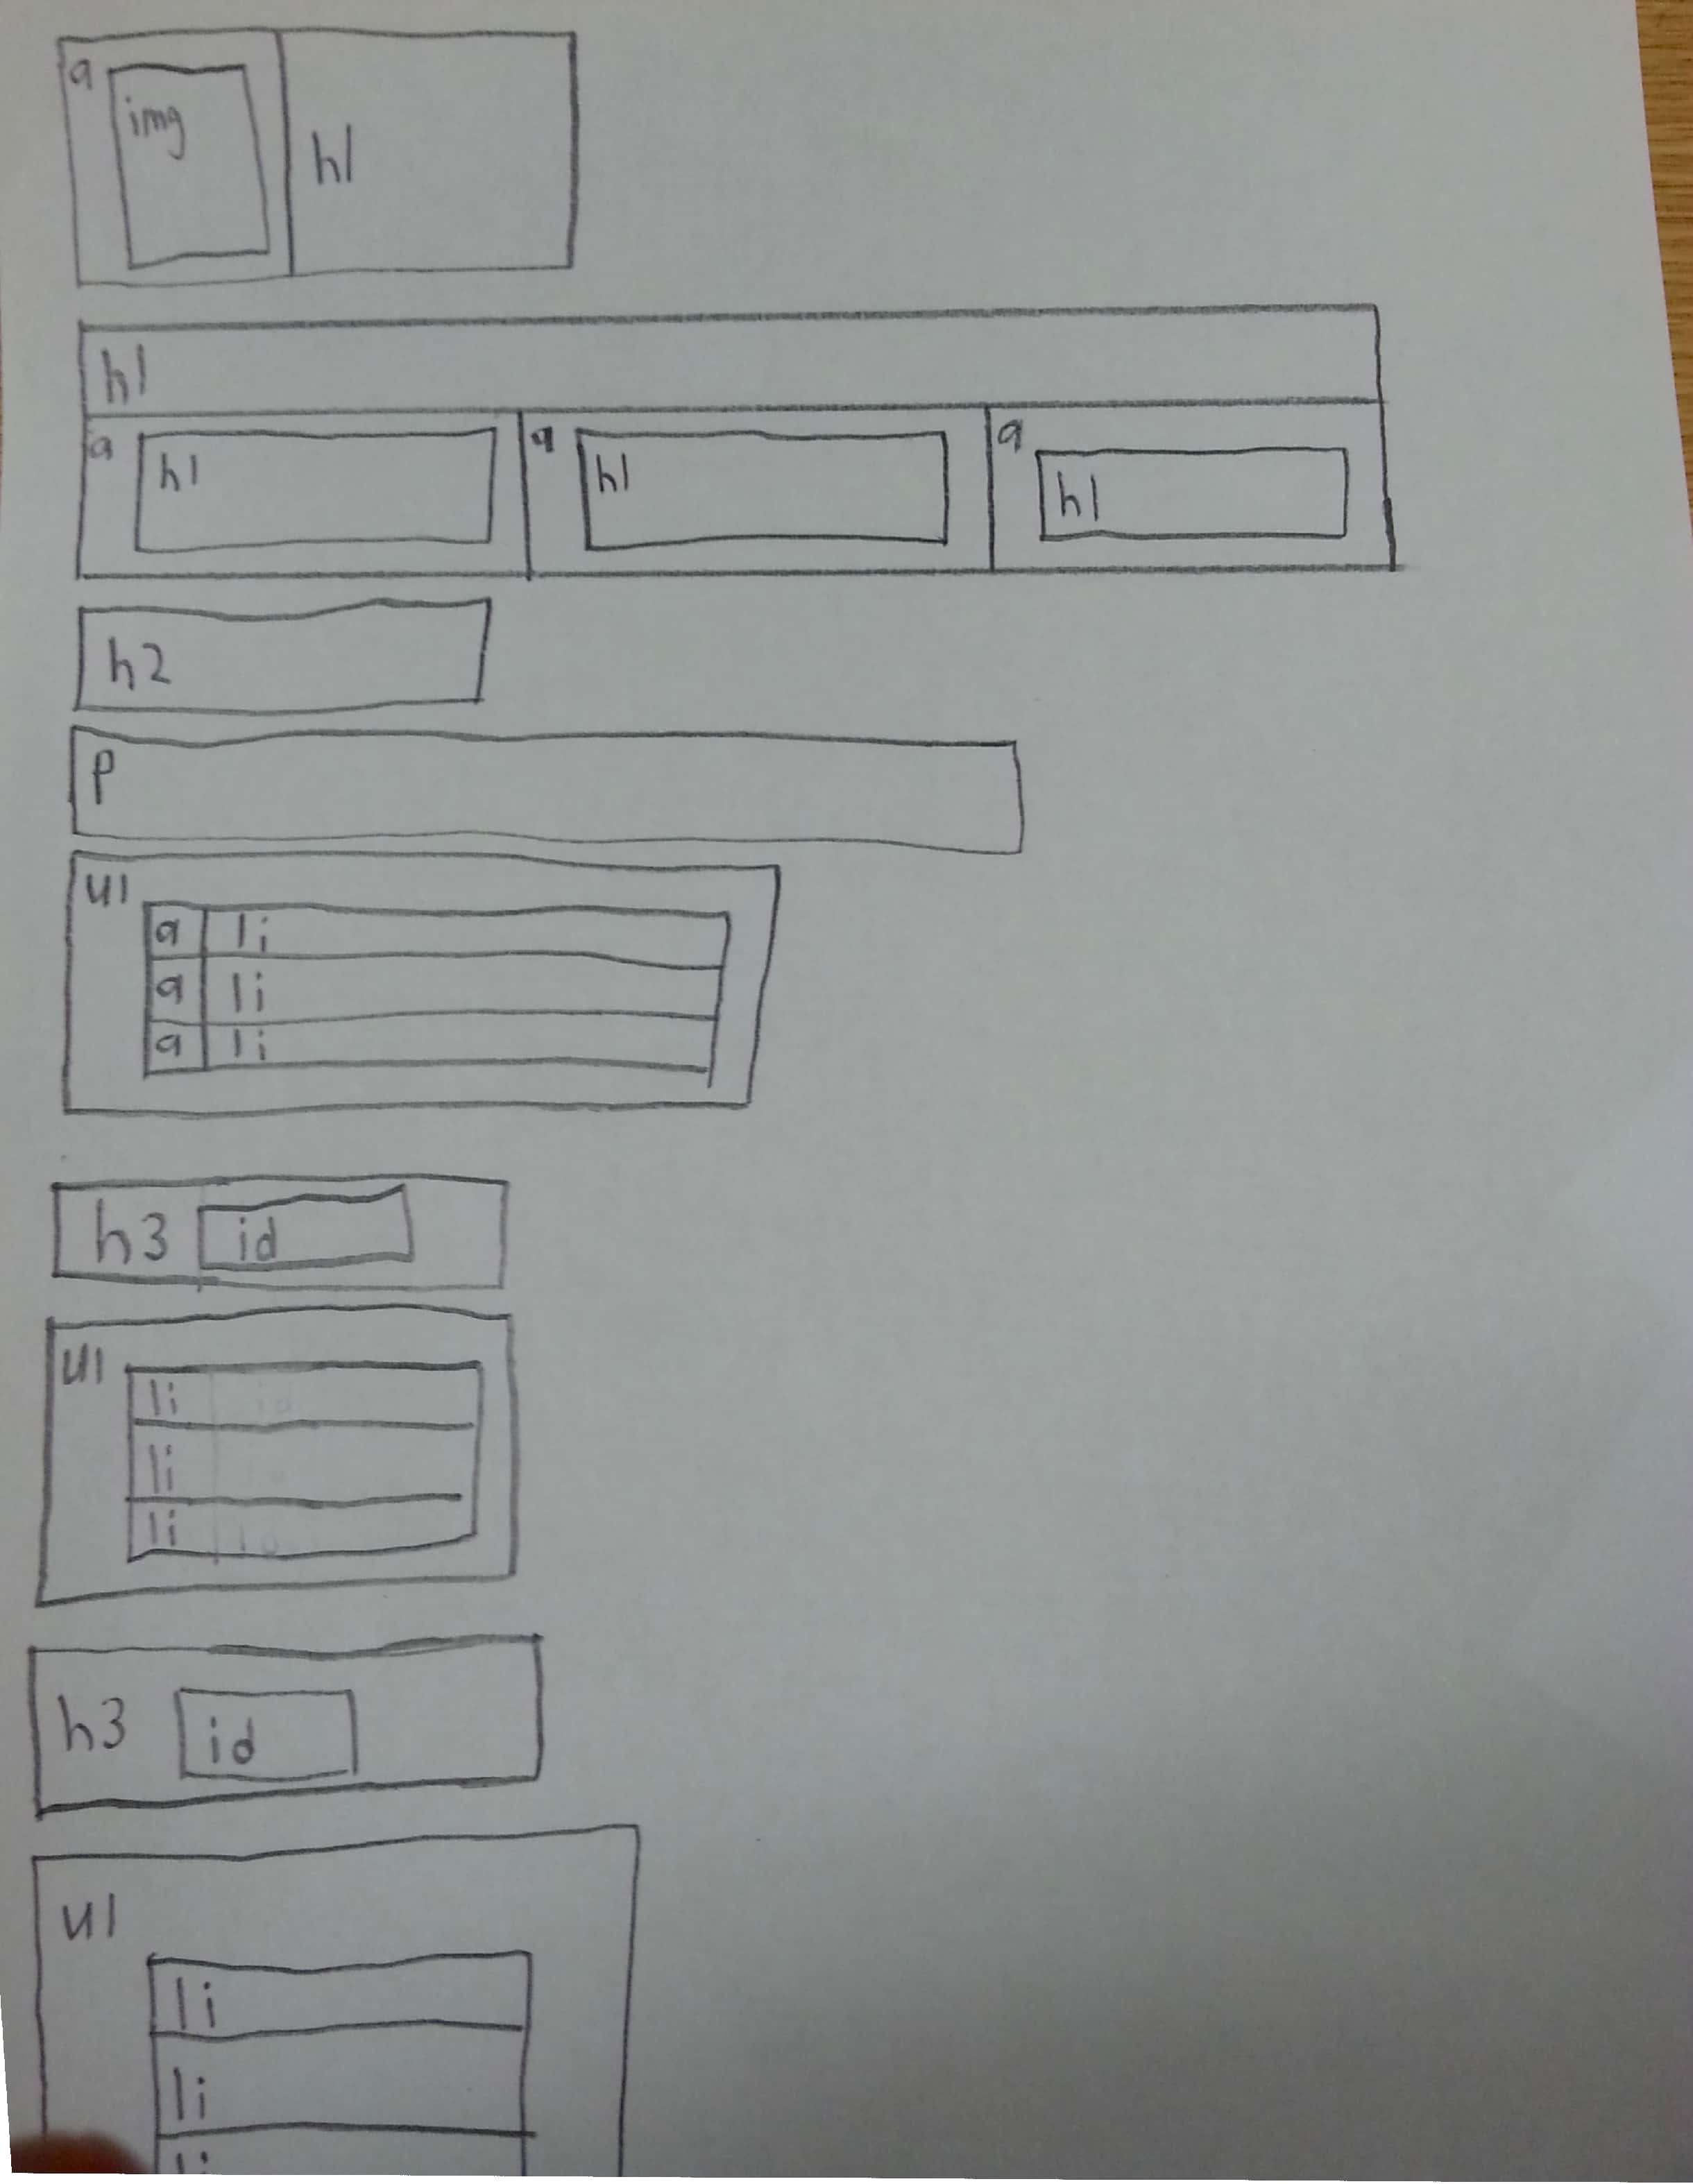 a
img
h1
h1
a h1 a h1 a h1
h2
p
ul
a li
a li
a li
h3 id
ul
li
li
li
h3 id
ul
li
li
li